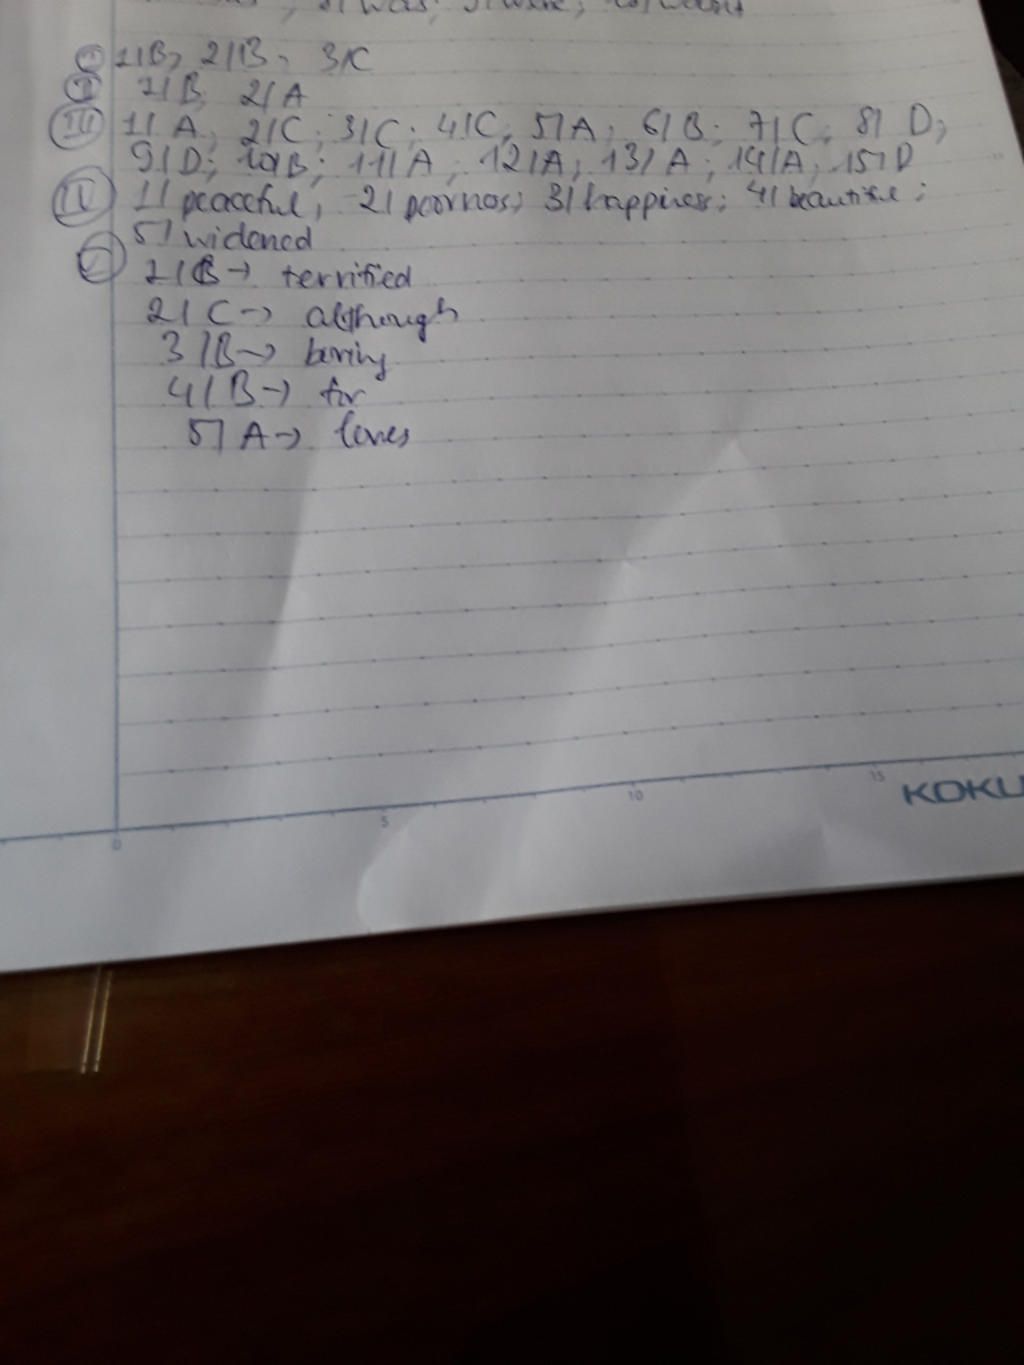 8/ was; 9/ were; 10/ wasn't
I 1/B, 2/B, 3/C
II 1/B, 2/A
III 1/A, 2/C; 3/C; 4/C, 5/A; 6/B; 7/C; 8/D;
9/D; 10/B; 11/A; 12/A; 13/A; 14/A, 15/D
IV 1/ peaceful, 2/ poornos; 3/ happiness; 4/ beautiful;
5/ widened
V 1/B → terrified
2/C → although
3/B → boring
4/B → for
5/A → loves
0 5 10 15 KOKU